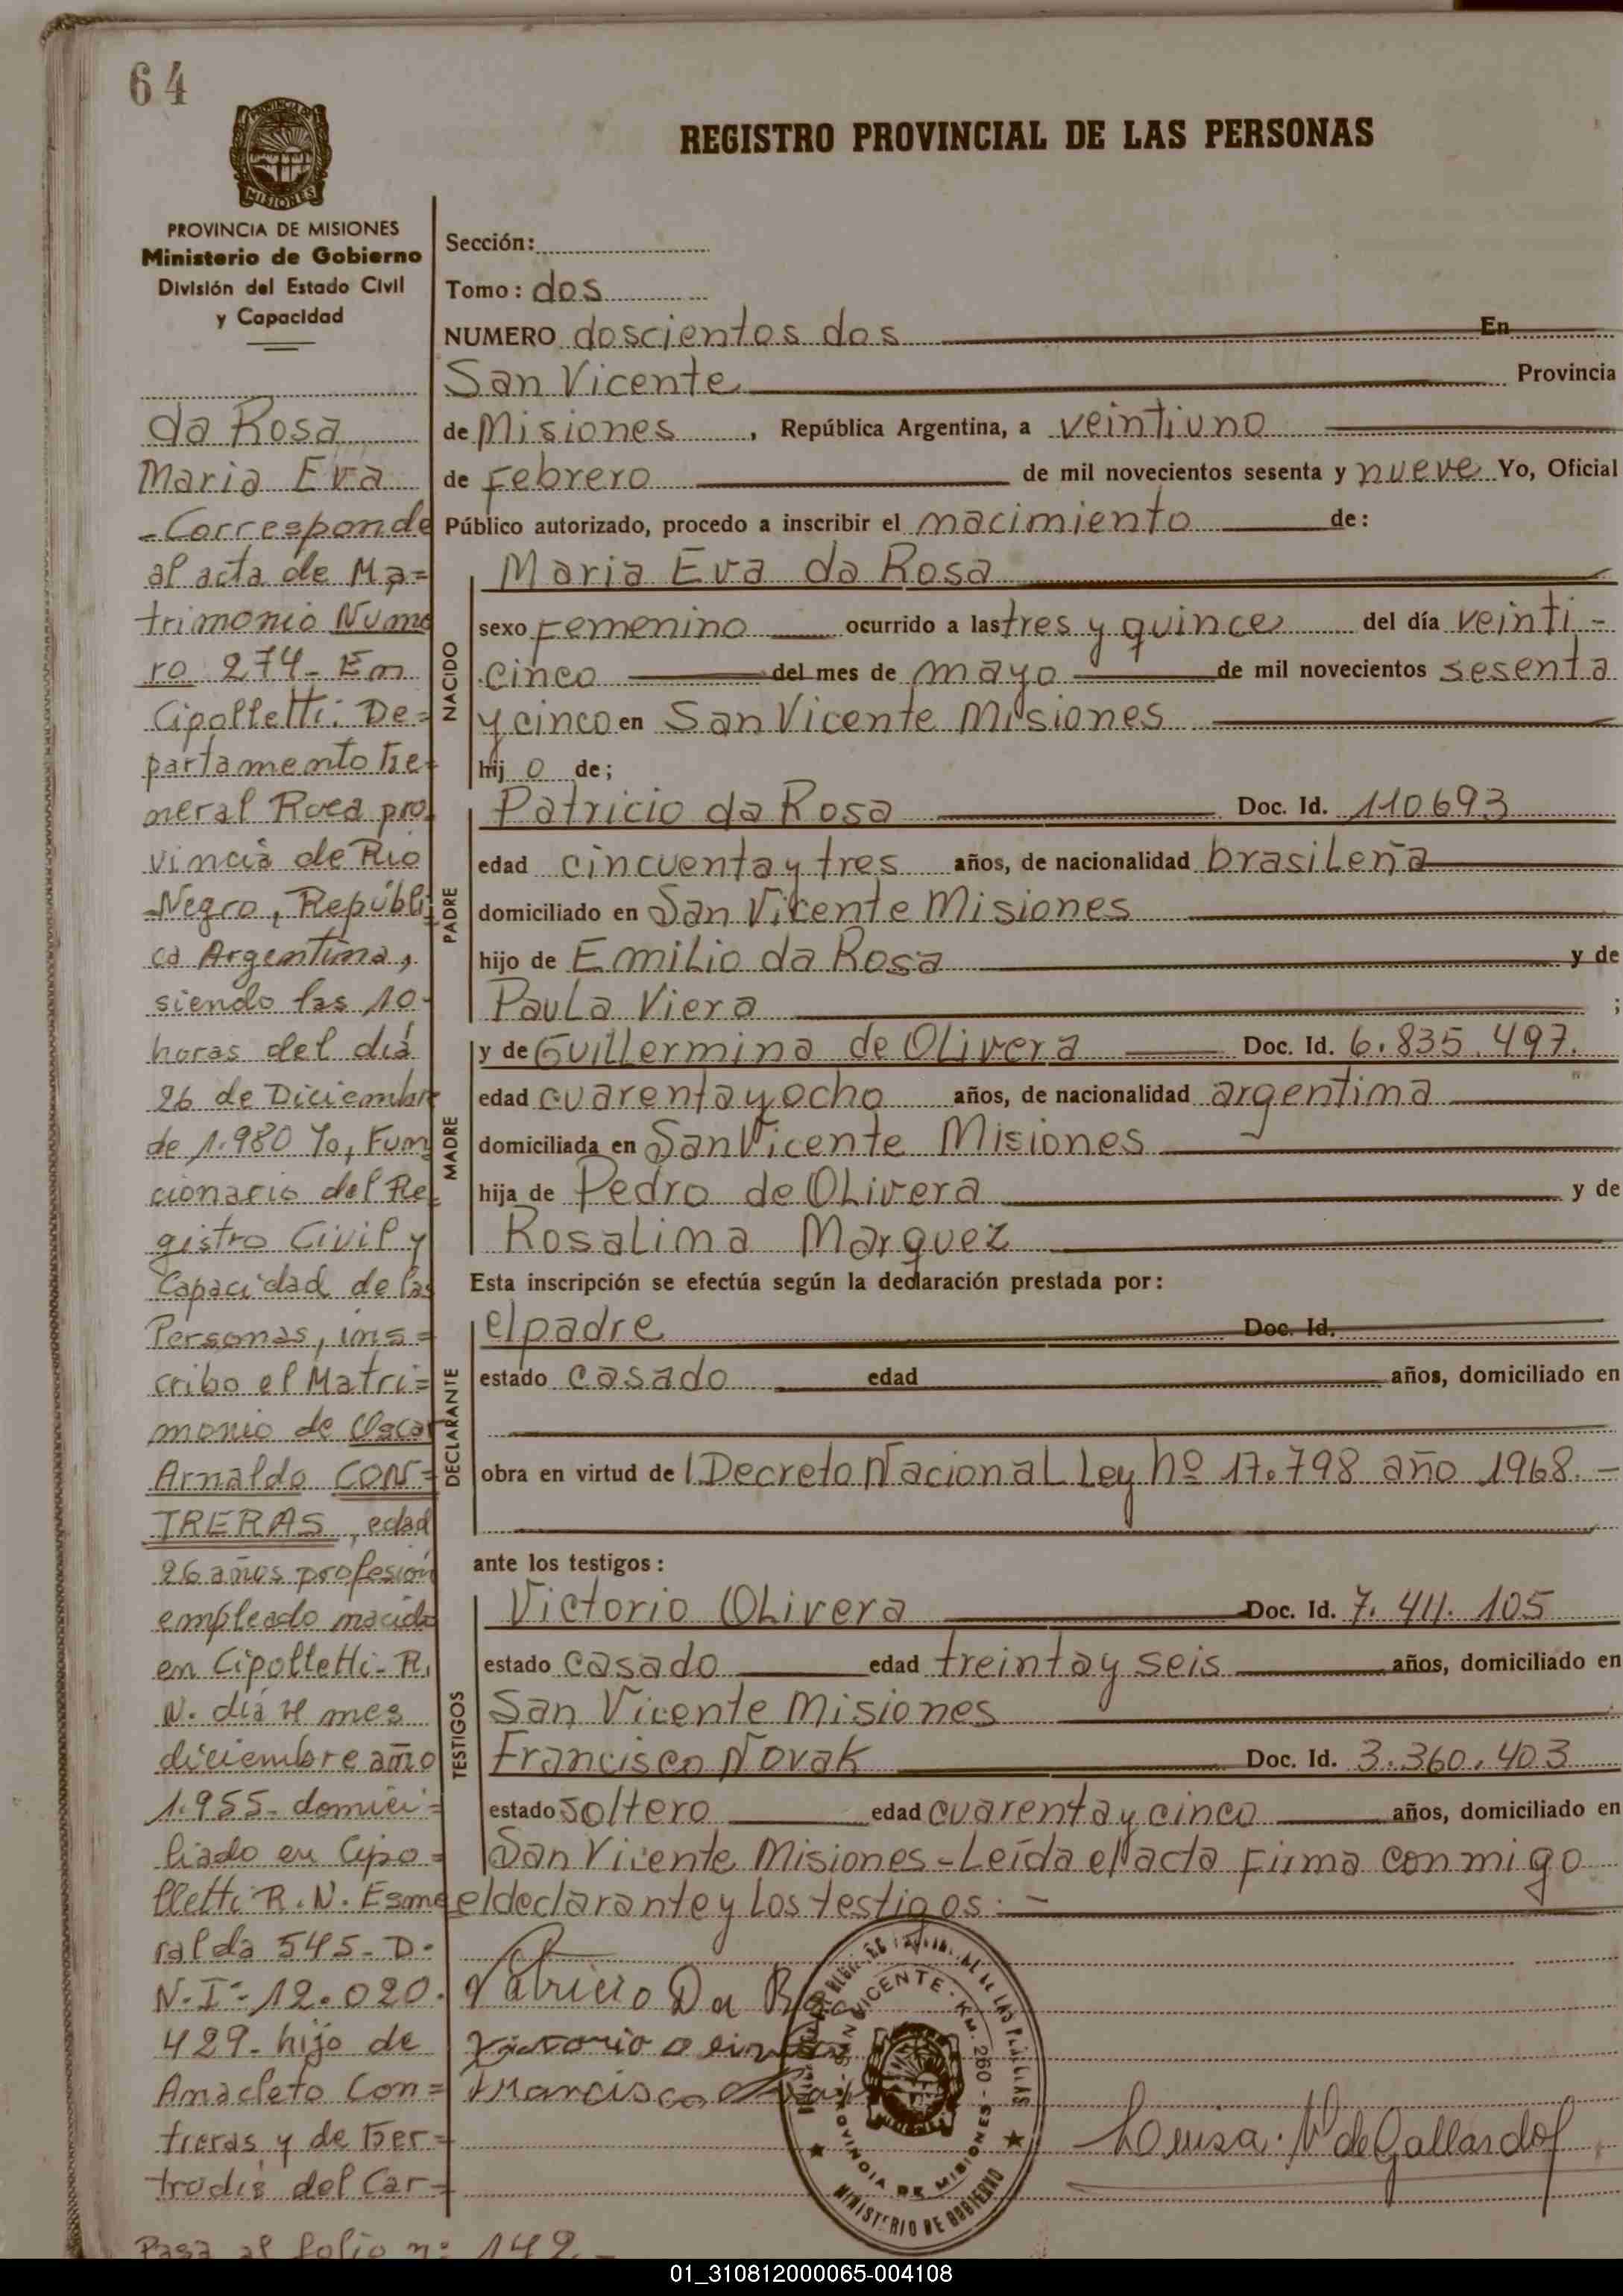 64
REGISTRO PROVINCIAL DE LAS PERSONAS
MISIONES
PROVINCIA DE MISIONES
Ministerio de Gobierno
División del Estado Civil
y Capacidad
da Rosa
Maria Eva
-Corresponde
al acta de Ma=
trimonio Nume
ro 274- En
Cipolletti. De=
partamento Ge-
neral Roca pro
vincia de Rio
Negro, Repúbli
ca Argentina,
siendo las 10-
horas del dia
26 de Diciembre
de 1.980 Yo, Fun
cionario del Re
gistro Civil y
Capacidad de las
Personas, ins=
cribo el Matri=
monio de Oscar
Arnaldo CON=
TRERAS, edad
26 años profesión
empleado nacido
en Cipolletti-R.
N. dia mes
diciembre año
1.955- domici=
liado en Cipo=
lletti R.N. Esme
ralda 545- D.
N.I.- 12.020.
429- hijo de
Anacleto Con=
treras y de Ger=
trudis del Car-
Pasa al folio nº 142.-
Sección:
Tomo: dos
NUMERO doscientos dos En
San Vicente Provincia
de Misiones, República Argentina, a veintiuno
de Febrero de mil novecientos sesenta y nueve Yo, Oficial
Público autorizado, procedo a inscribir el nacimiento de:
NACIDO
Maria Eva da Rosa
sexo Femenino ocurrido a las tres y quince del día veinti-
cinco del mes de mayo de mil novecientos sesenta
y cinco en San Vicente Misiones
hij o de;
PADRE
Patricio da Rosa Doc. Id. 110693
edad cincuenta y tres años, de nacionalidad brasileña
domiciliado en San Vicente Misiones
hijo de Emilio da Rosa y de
Paula Viera ;
MADRE
y de Guillermina de Olivera Doc. Id. 6.835.497.
edad cuarenta y ocho años, de nacionalidad argentina
domiciliada en San Vicente Misiones
hija de Pedro de Olivera y de
Rosalima Marquez
Esta inscripción se efectúa según la declaración prestada por:
DECLARANTE
el padre Doc. Id.
estado casado edad años, domiciliado en
obra en virtud de l Decreto Nacional Ley nº 17.798 año 1968.-
ante los testigos:
TESTIGOS
Victorio Olivera Doc. Id. 7.411.105
estado casado edad treinta y seis años, domiciliado en
San Vicente Misiones
Francisco Novak Doc. Id. 3.360.403
estado soltero edad cuarenta y cinco años, domiciliado en
San Vicente Misiones-Leída el acta Firma conmigo
el declarante y los testigos:-
Patricio Da Rosa
Francisco
SAN VICENTE - KM. 260 - PROVINCIA DE MISIONES
MINISTERIO DE GOBIERNO
Louisa. V de Gallardo
01_310812000065-004108